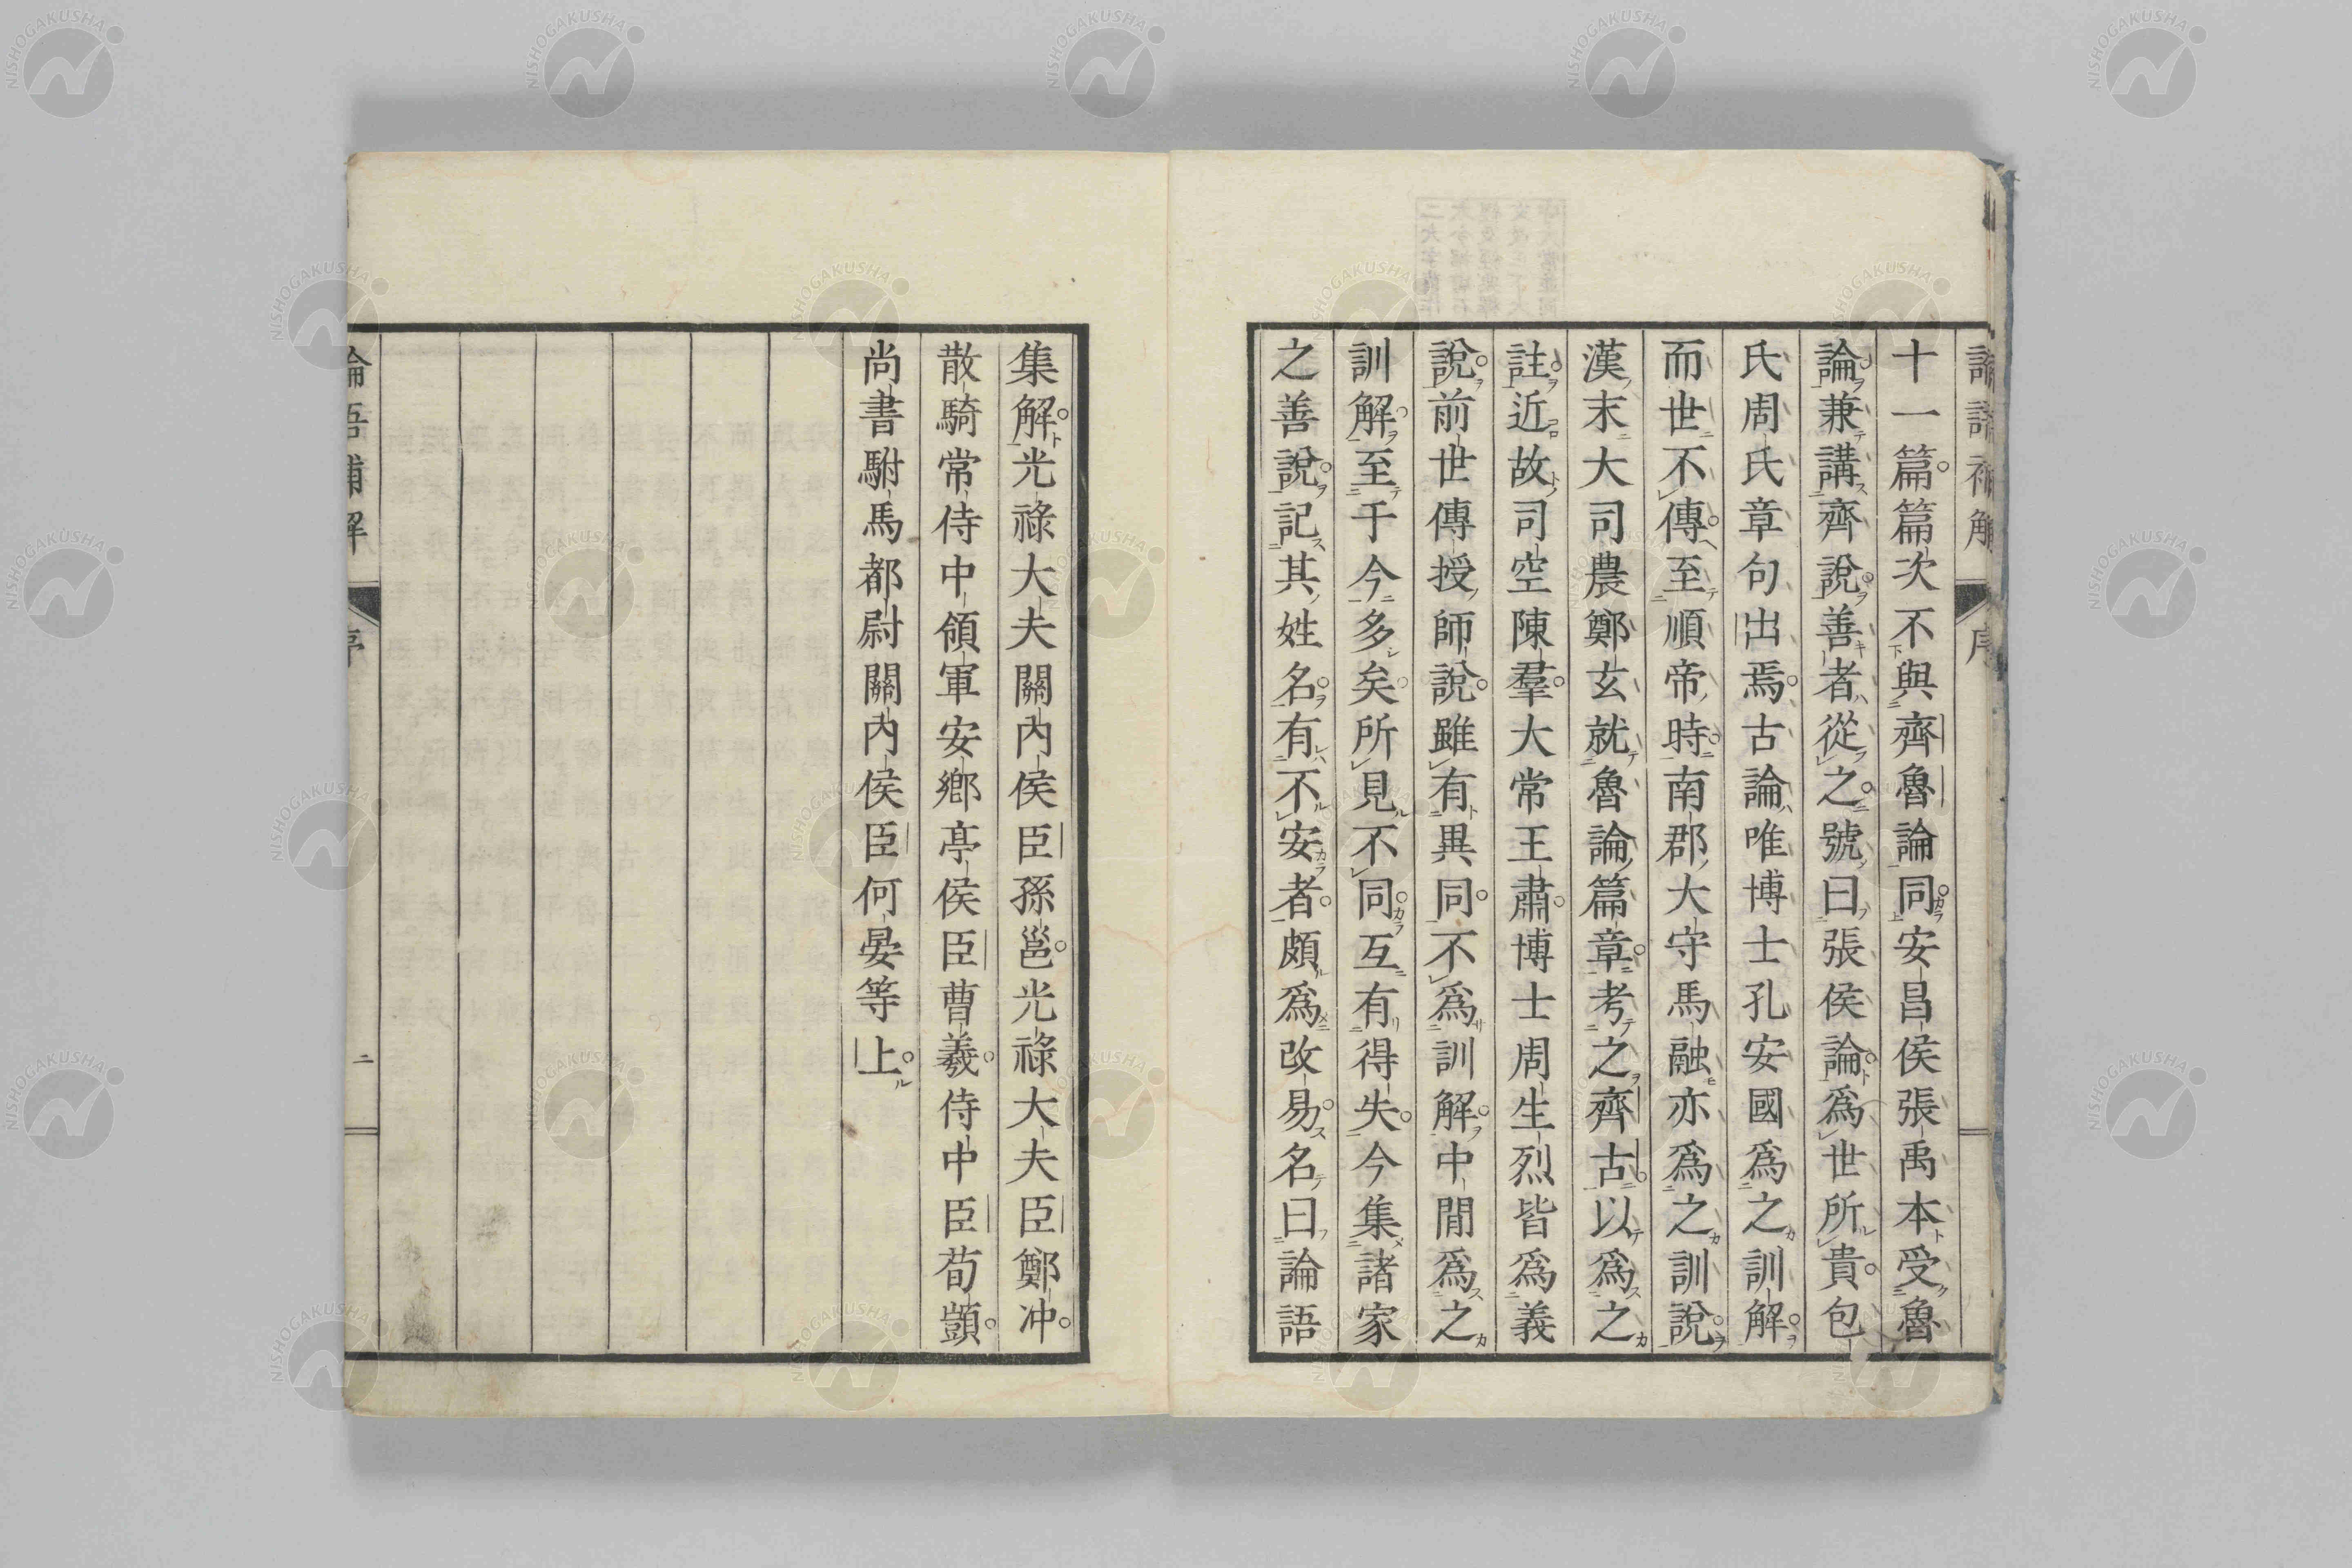 論語補解
序
十一篇篇次不與齊魯論同安昌侯張禹本受魯
論兼講齊說善者從之號曰張侯論爲世所貴包
氏周氏章句出焉古論唯博士孔安國爲之訓解
而世不傳至順帝時南郡大守馬融亦爲之訓說
漢末大司農鄭玄就魯論篇章考之齊古以爲之
註近故司空陳羣大常王肅博士周生烈皆爲義
說前世傳授師說雖有異同不爲訓解中閒爲之
訓解至于今多矣所見不同互有得失今集諸家
之善說記其姓名有不安者頗爲改易名曰論語
集解光祿大夫關內侯臣孫邕光祿大夫臣鄭冲
散騎常侍中領軍安鄉亭侯臣曹羲侍中臣荀顗
尚書駙馬都尉關內侯臣何晏等上
論語補解
序
二
NISHOGAKUSHA